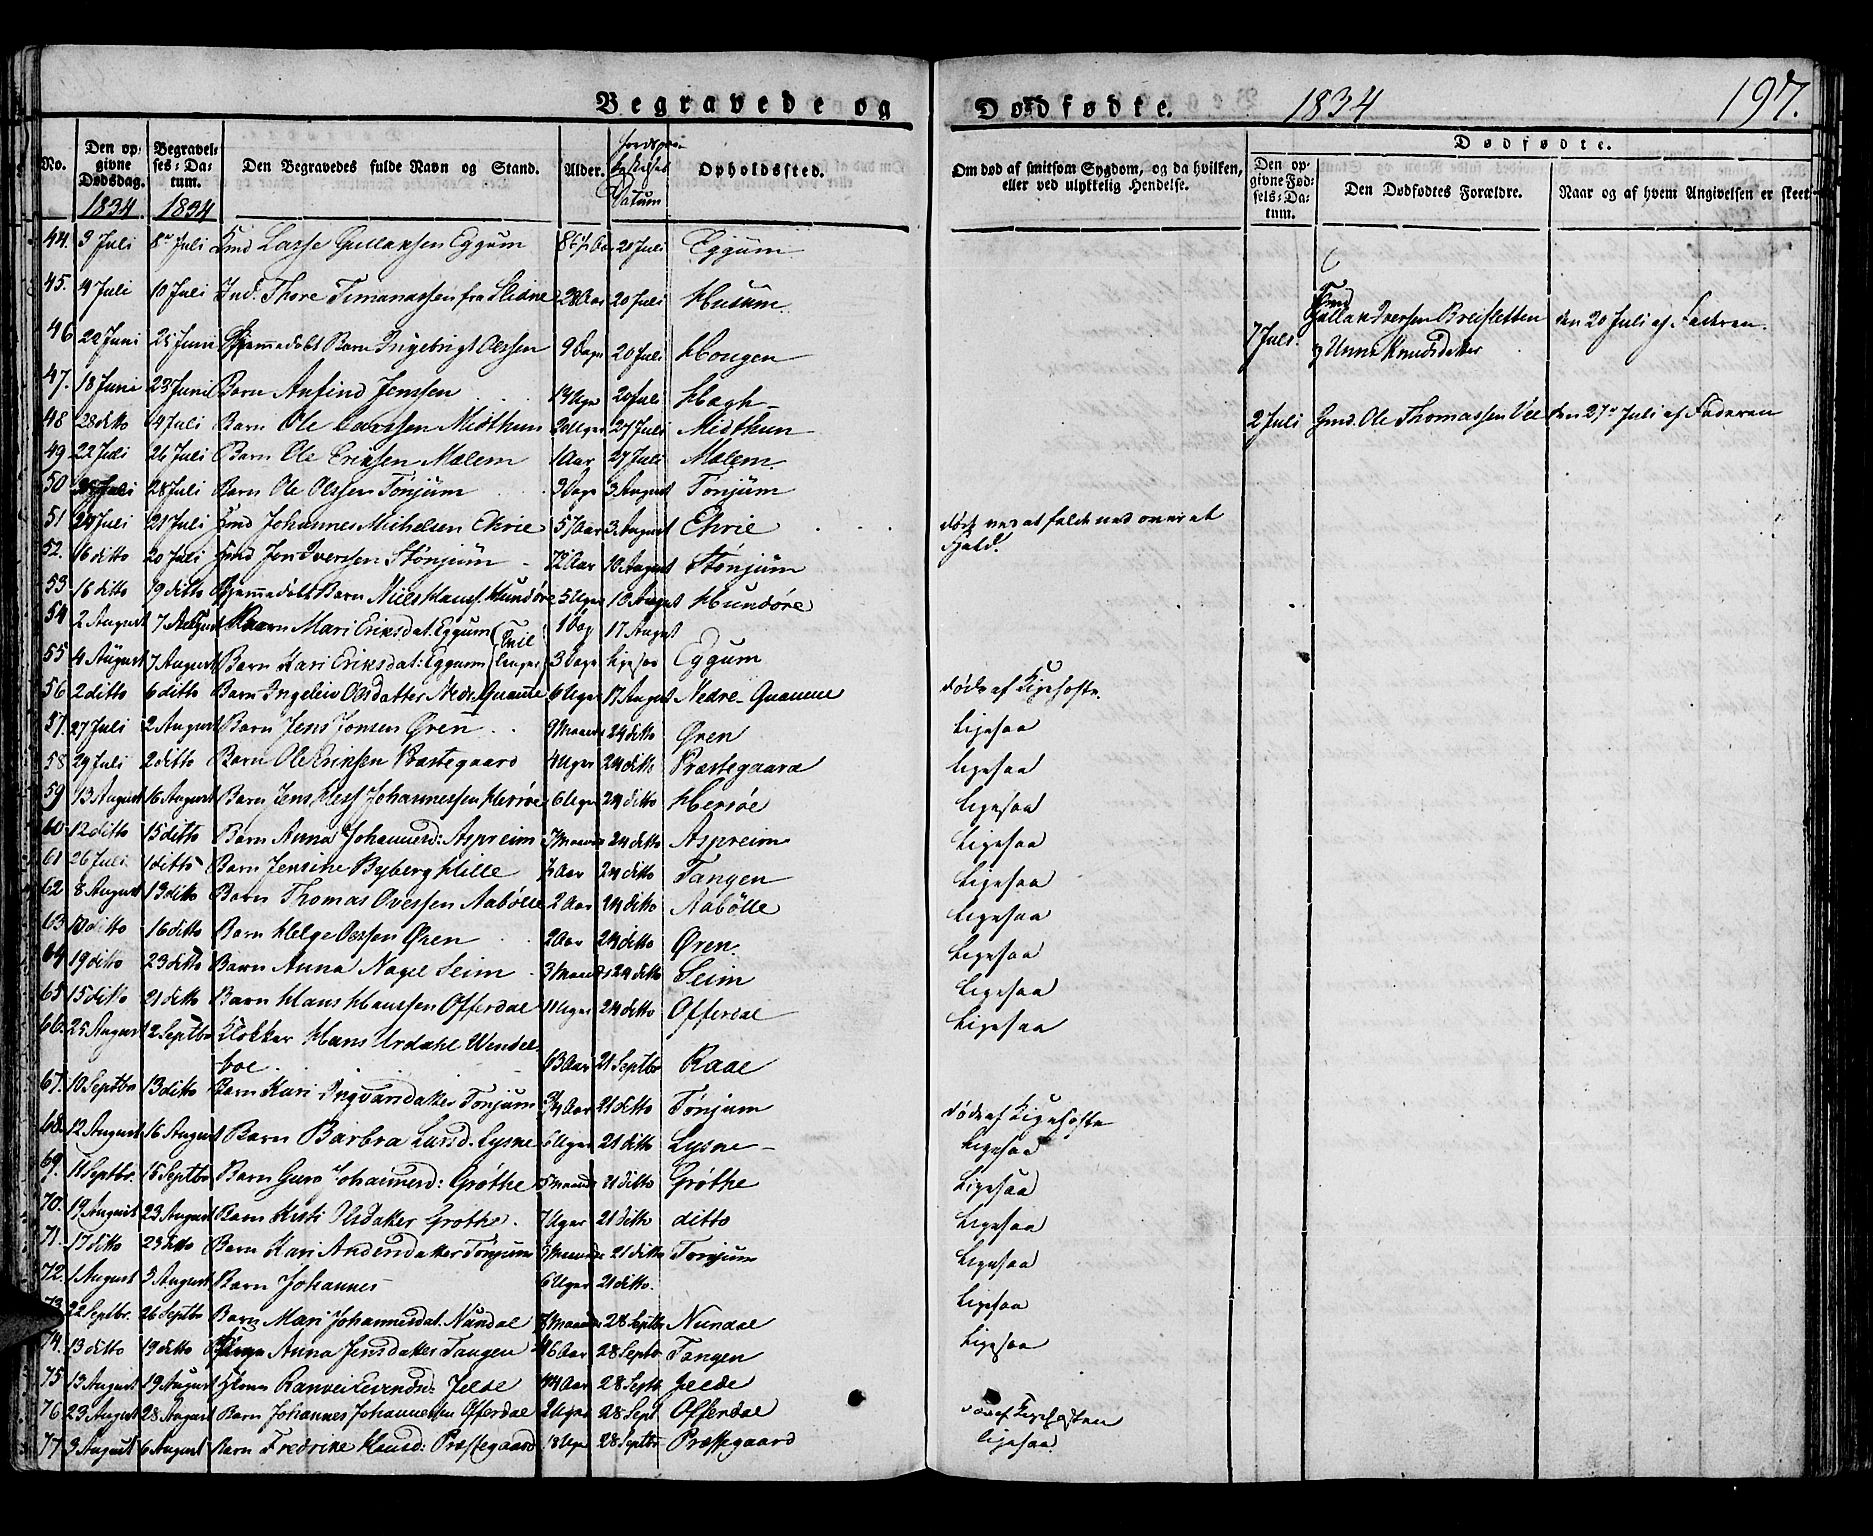 Begravede og Dødfødte. 1834 197.
No.
Den opgivne Dødsdag. 1834
Begravelses-Datum. 1834
Den Begravedes fulde Navn og Stand.
Alder.
Datum
Opholdssted.
Om død af smitsom Sygdom, og da hvilken, eller ved ulykkelig Hendelse.
Dødfødte.
Den opgivne Fødsels-Datum.
Den Dødfødtes Forældre.
Naar og af hvem Angivelsen er skeet.
44. 3 Juli 8de Juli Lasse Gullaksen Eggum 20 Juli Eggum
45. 4 Juli 10 Juli Ind. Thore fra Slidre 28 Aar 20 Juli Husum
46 22 Juni 25 Juni Hjemmedøbt Barn Ingebrigt Olssen 9 Dage 20 Juli Hougen
7 Juli. Iversen Breisletten den 20 Juli af Faderen.
og Unni Knudsdatter
47. 18 Juni 23 Juni Barn Anfind Jenssen 20 Juli Hagh
48 28 ditto 4 Juli Barn Ole Larssen Midthun 2 Uger 27 Juli Midthun
2 Juli Gmd. Ole Thomassen Vee den 27de Juli af Faderen
49 22 Juli 26 Juli Barn Ole Eriksen Molem 1 Aar 27 Juli Molem
50 28 Juli Barn Ole Olssen Tønjum 9 Dage 3 August Tønjum
51 24 Juli 21 Juli Gmd Johannes Michelsen Ehrie 57 Aar 3 August Ehrie døde ved at falde ned over et Fjeld.
52. 16 ditto 20 Juli Gmd Jon Iverssen Stønjum 72 Aar 10 August Stønjum
53 16 ditto 19 ditto Hjemmedøbt Barn Niels Hanss. Hundøre 5 Uger 10 August Hundøre
54 2 August 7 August Barn Mari Eriksdat: Eggum 1 Dag 17 August
(Tvillinger)
55 4 August 7 August Barn Kari Eriksdat: Eggum 3 Dage ligesaa Eggum
56 2 ditto 6 ditto Barn Ingeleiv Olsdatter Nedr. Quamme 6 Uger 17 August Nedre Quamme døde af Kighoste.
57. 27 Juli 2 August Barn Jens Jonsen Øren 9 Maaneder 24 ditto Øren Ligesaa
58 29 Juli 2 ditto Barn Ole Eriksen Præstegaard 4 Uger 24 ditto Præstegaard Ligesaa
59 13 August 16 August Barn Jens Johannessen Hersøe 6 Uger 24 ditto Hersøe Ligesaa
60 12 ditto 15 ditto Barn Anna Johannesd: Aspreim 24 ditto Aspreim Ligesaa
61 26 Juli. 1 ditto Barn Jensine Byberg Hille Aar 24 ditto Tangen Ligesaa
62 8 August 13 ditto Barn Thomas Ovessen Aabølle 2 Aar 24 ditto Aabølle Ligesaa
63 10 ditto 16 ditto Barn Helge Olssen Øren 2 Aar 24 ditto Øren. Ligesaa
64 19 ditto 23 ditto Barn Anna Nagel Seim 3 Maaneder 24 ditto Seim Ligesaa
65 15 ditto 21 ditto Barn Hans Hanssen Offerdal 11 Uger 24 ditto Offerdal Ligesaa
66. 25 August 2 Septbr Klokker Hans Urdahl Wendelboe. 63 Aar 21 Septbr Raae
67. 10 Septbr 13 ditto Barn Kari Ingvarsdatter Tønjum 3/4 Aar 21 ditto Tønjum døde af Kighoste
68. 12 August 16 August Barn Barbra Larsd. Lysne 6 Uger 21 ditto Lysne Ligesaa
69. 11 Septbr. 15 Septbr Barn Guro Johannesd: Grøthe 21 ditto Grøthe Ligesaa
70. 19 August 23 August Barn Kisti Olsdatter Grøthe. 7 Uger 21 ditto ditto Ligesaa
71. 17 ditto 23 ditto Barn Kari Andersdatter Tønjum 21 ditto Tønjum Ligesaa
72. 1 August 5 August Barn Johannes 6 Uger 21 ditto. Ligesaa
73. 22 Septbr. 26 Septbr Barn Mari Johannesdat. Nundal 28 Septbr Nundal Ligesaa
74. 13 ditto 19 ditto Anna Jensdatter Tangen 28 Septb Tangen
75 13 August 19 August Ranvei Jelde 44 Aar 28 Septb Jelde
76 23 August 28 August Barn Johannes Johannessen Offerdal 2 Uger 28 Sept Offerdal død af Kighosten
77 3 August 6 August Barn Fredrike Hansd: Præstegaard 28 Septbr Præstegaard ligesaa